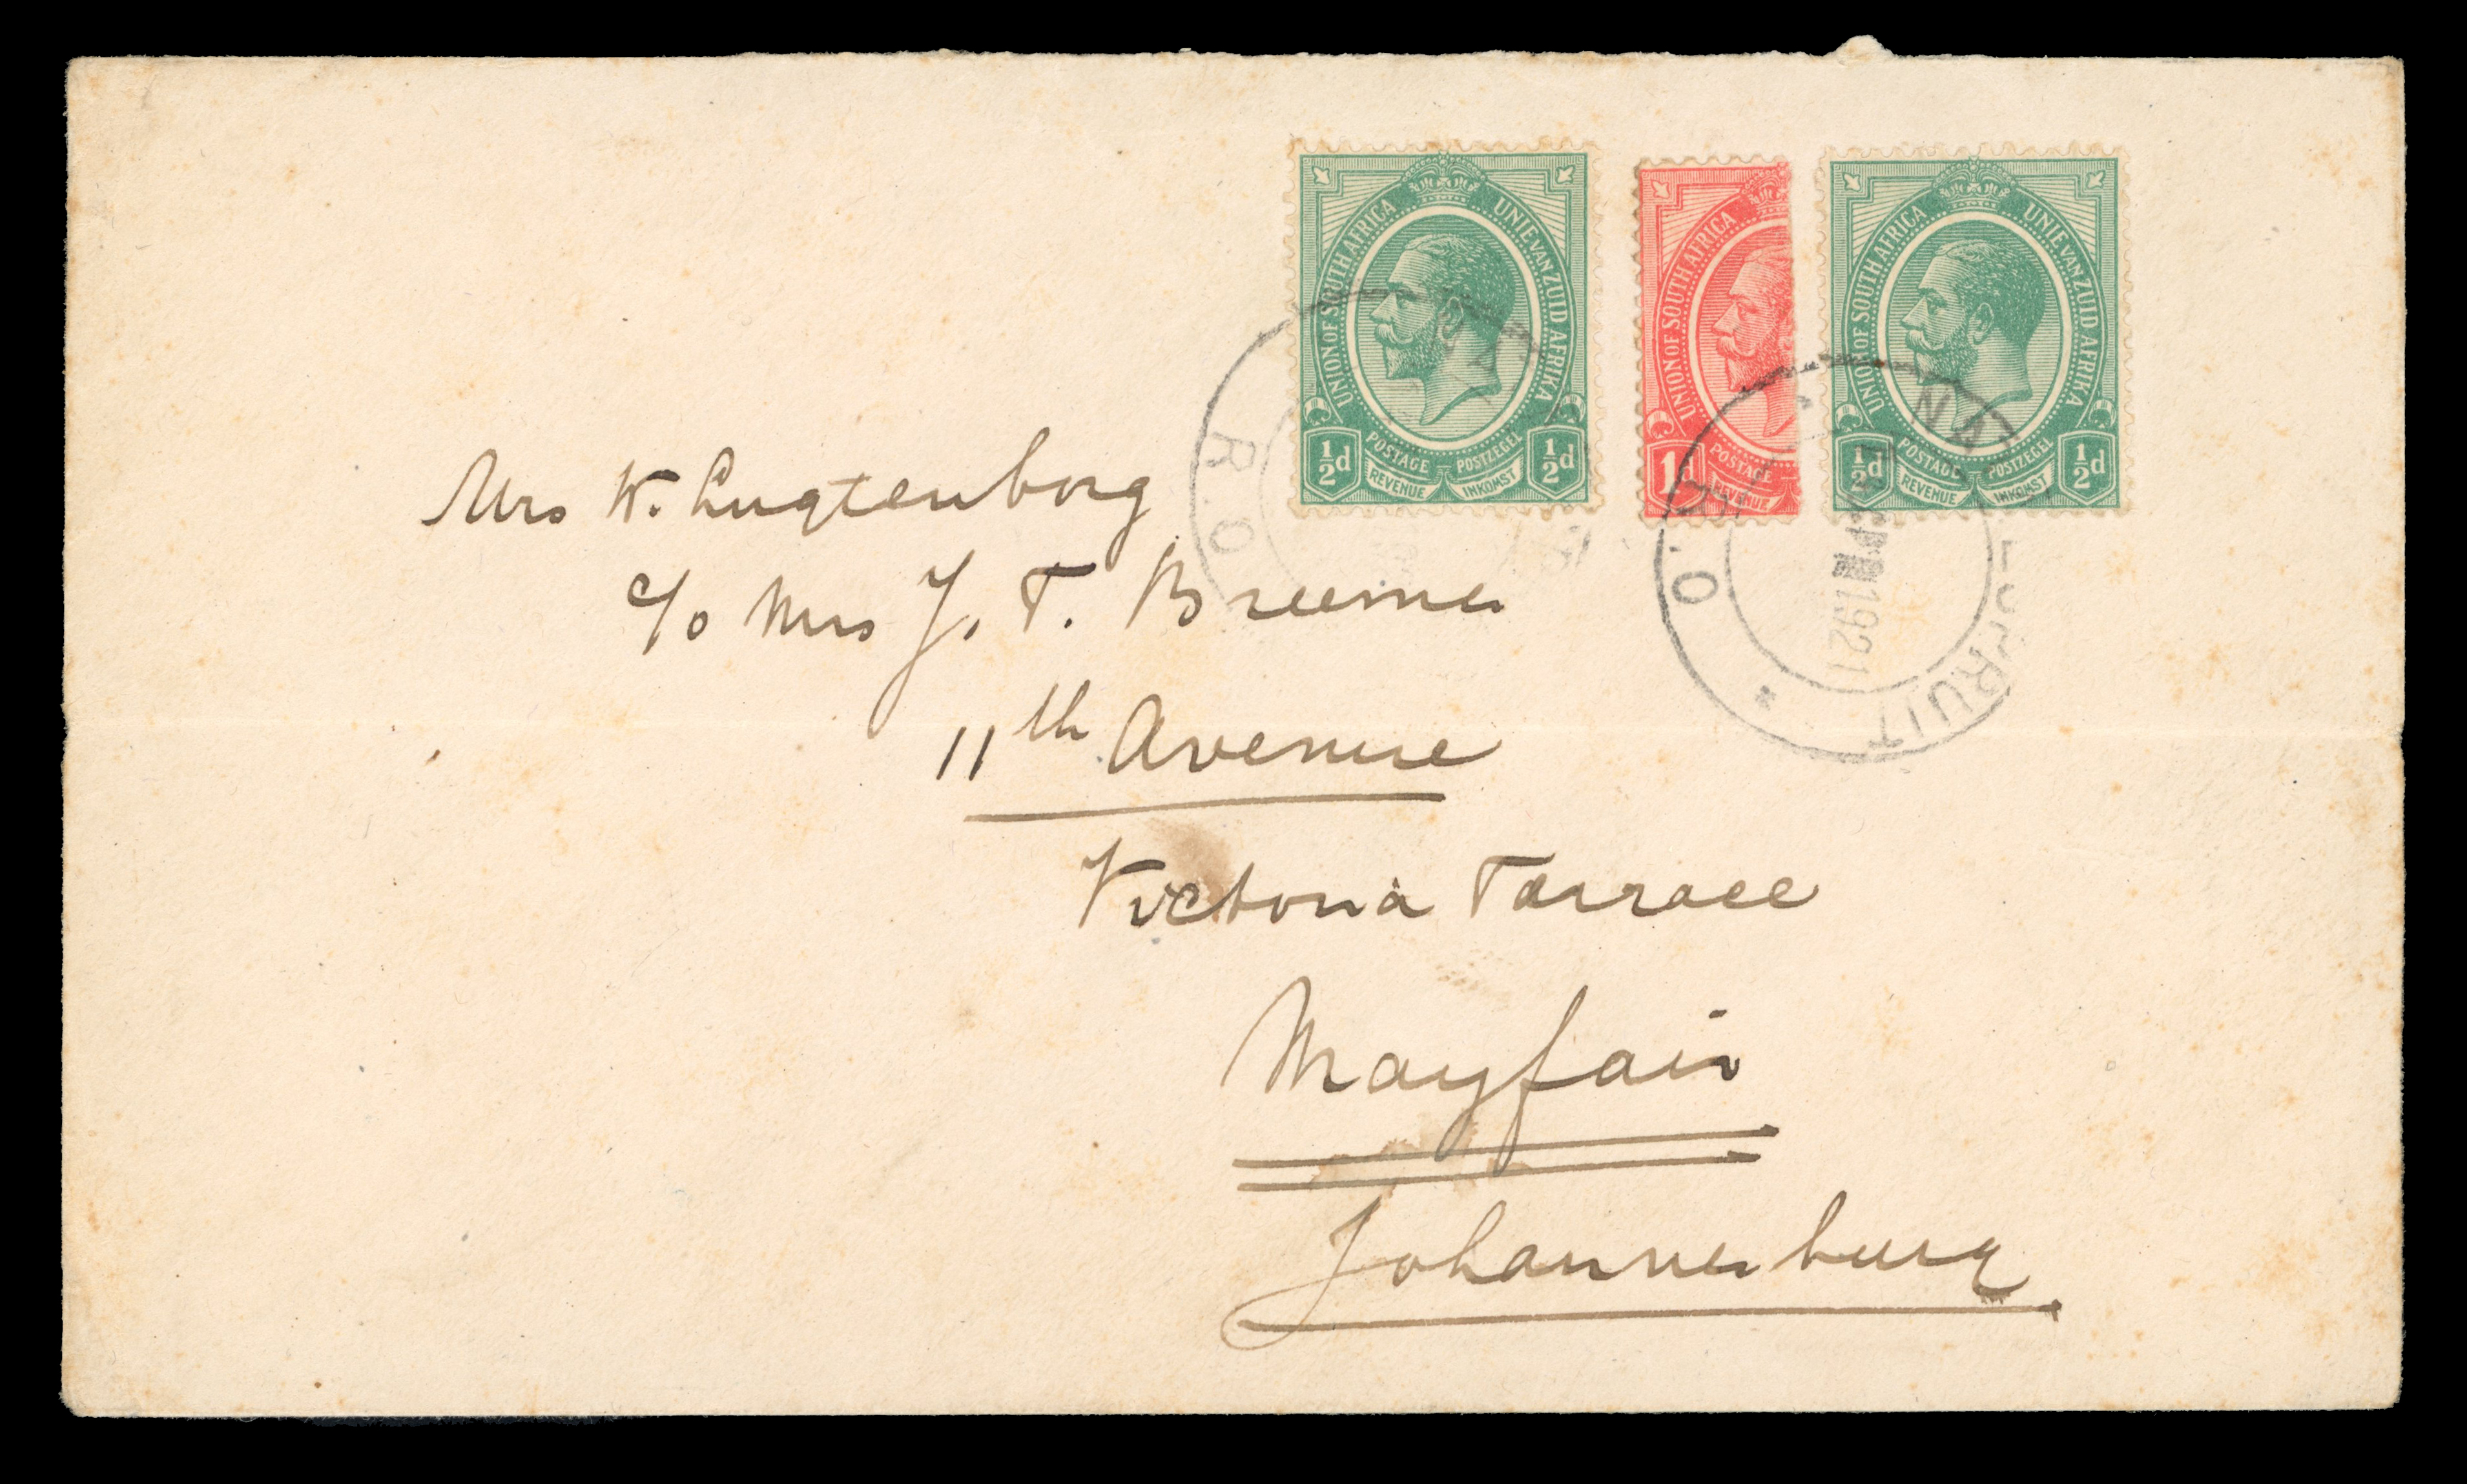 UNION OF SOUTH AFRICA UNIE VAN ZUID AFRIKA
POSTAGE POSTZEGEL
½d REVENUE INKOMST ½d
UNION OF SOUTH AFRICA
POSTAGE
1 REVENUE
UNION OF SOUTH AFRICA UNIE VAN ZUID AFRIKA
POSTAGE POSTZEGEL
½d REVENUE INKOMST ½d
R.O
NA
R.O
NA
PRUIT
1921
Mrs K. Lugtenborg
c/o Mrs J. T. Breemer
11th Avenue
Victoria Tarrace
Mayfair
Johannesburg